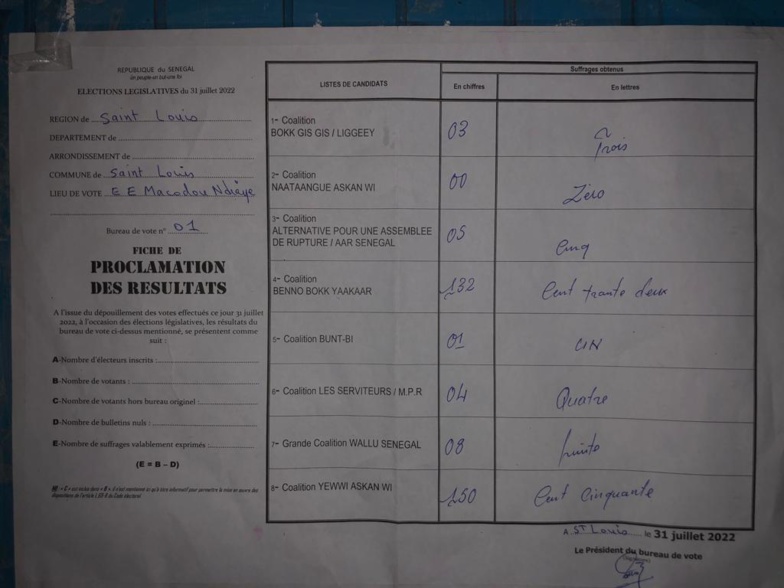 REPUBLIQUE du SENEGAL
Un peuple-un but-une foi
ELECTIONS LEGISLATIVES du 31 juillet 2022
REGION de Saint Louis
DEPARTEMENT de
ARRONDISSEMENT de
COMMUNE de Saint Louis
LIEU DE VOTE E E Macodou Ndiaye
Bureau de vote n° 01
FICHE DE
PROCLAMATION
DES RESULTATS
A l'issue du dépouillement des votes effectués ce jour 31 juillet
2022, à l'occasion des élections législatives, les résultats du
bureau de vote ci-dessus mentionné, se présentent comme
suit :
A-Nombre d'électeurs inscrits :
B-Nombre de votants :
C-Nombre de votants hors bureau originel :
D-Nombre de bulletins nuls :
E-Nombre de suffrages valablement exprimés :
(E = B – D)
LISTES DE CANDIDATS
Suffrages obtenus
En chiffres
En lettres
1- Coalition
BOKK GIS GIS / LIGGEEY
03
Trois
2- Coalition
NAATAANGUE ASKAN WI
00
Zéro
3- Coalition
ALTERNATIVE POUR UNE ASSEMBLEE
DE RUPTURE / AAR SENEGAL
05
cinq
4- Coalition
BENNO BOKK YAAKAAR
132
Cent trante deux
5- Coalition BUNT-BI
01
UN
6- Coalition LES SERVITEURS / M.P.R
04
Quatre
7- Grande Coalition WALLU SENEGAL
08
huite
8- Coalition YEWWI ASKAN WI
150
Cent cinquante
A ST Louis le 31 juillet 2022
Le Président du bureau de vote